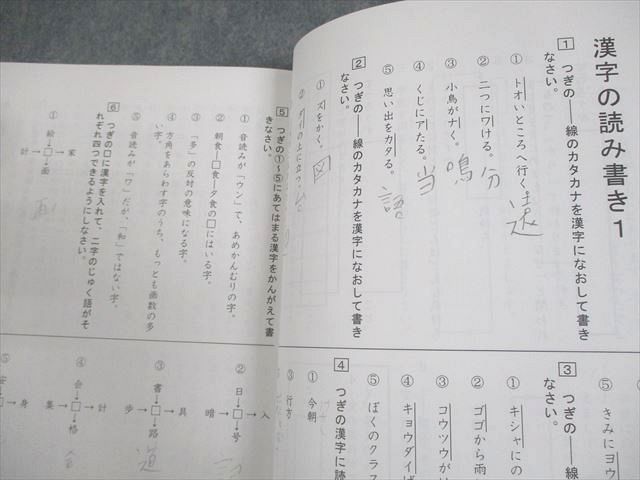 漢字の読み書き1
1 つぎの――線のカタカナを漢字になおして書き
なさい。
① トオいところへ行く。 遠
② 二つにワける。 分
③ 小鳥がナく。 鳴
④ くじにアたる。 当
⑤ 思い出をカタる。 語
2 つぎの――線のカタカナを漢字になおして書き
なさい。
① ズをかく。 図
3 つぎの――線
なさい。
① キシャにの
② ゴゴから雨
③ コウツウが
④ キョウダイ
⑤ ぼくのクラス
4 つぎの漢字に
① 今朝
③ 行方
⑤ きみにヨウ
5 つぎの①〜⑤にあてはまる漢字をかんがえて書
きなさい。
① 音読みが「ウン」で、あめかんむりの字。
② 朝食―□食―夕食の□にはいる字。
③ 「多」の反対の意味になる字。
④ 方角をあらわす字のうち、もっとも画数の多
い字。
⑤ 音読みが「ワ」だが、「和」ではない字。
6 つぎの□に漢字を入れて、二字のじゅく語がそ
れぞれ四つできるようにしなさい。
① 絵→□→家
計→□→面
② 日→□→入
暗→□→号
③ 書→□→具
歩→□→路
道
④ 会→□→計
集→□→格
合
⑤ 安→□→身